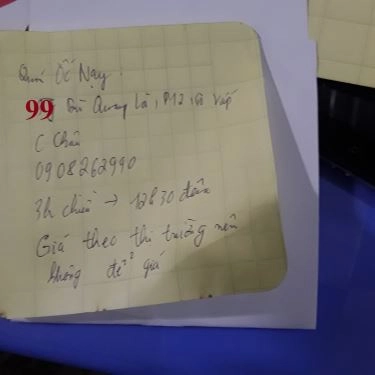 Quán Ốc Nay :
99 Bùi Quang Là, P12, Gò Vấp
C Châu
0908262990
3h chiều → 12h30 đêm
Giá theo thị trường nên
không để giá